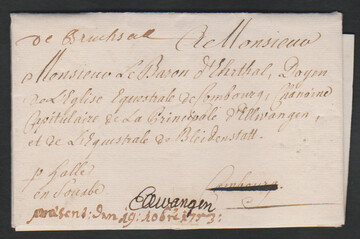 de Bruchsal
A Monsieur
Monsieur Le Baron d'Ehrthal, Doyen
de L'Eglise Equestrale de Combourg, Chanoine
Capitulaire de La Principale d'Ellwangen,
et de L'Equestrale de Bleidenstatt.
p Halle
en Souabe
Combourg.
Elwangen
præsent: den 19: 10bre 1753: